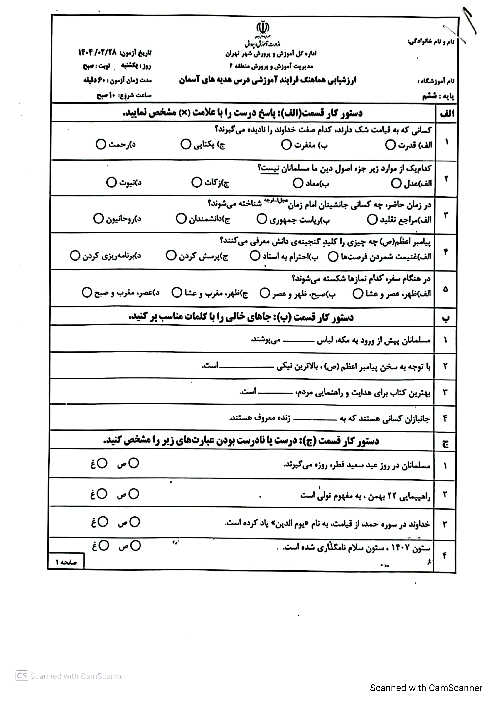 نام و نام خانوادگی:
اداره کل آموزش و پرورش شهر تهران
مدیریت آموزش و پرورش منطقه ۴
تاریخ آزمون: ۱۴۰۴/۰۲/۲۸
روز: یکشنبه نوبت: صبح
نام آموزشگاه:
ارزشیابی هماهنگ فرایند آموزشی درس هدیه های آسمان
مدت زمان آزمون: ۶۰ دقیقه
پایه: ششم
ساعت شروع: ۱۰ صبح
الف دستور کار قسمت(الف): پاسخ درست را با علامت (×) مشخص نمایید.
۱ کسانی که به قیامت شک دارند، کدام صفت خداوند را نادیده می‌گیرند؟
الف) قدرت ب) مغفرت ج) یکتایی د)رحمت
۲ کدام‌یک از موارد زیر جزء اصول دین ما مسلمانان نیست؟
الف)عدل ب)معاد ج)زکات د)نبوت
۳ در زمان حاضر، چه کسانی جانشینان امام زمان شناخته می‌شوند؟
الف)مراجع تقلید ب)ریاست جمهوری ج)دانشمندان د)روحانیون
۴ پیامبر اعظم(ص) چه چیزی را کلید گنجینه‌ی دانش معرفی می‌کنند؟
الف)غنیمت شمردن فرصت‌ها ب)احترام به استاد ج)پرسش کردن د)برنامه‌ریزی کردن
۵ در هنگام سفر، کدام نمازها شکسته می‌شوند؟
الف)ظهر، عصر و عشا ب)صبح، ظهر و عصر ج)ظهر، مغرب و عشا د)عصر، مغرب و صبح
ب دستور کار قسمت (ب): جاهای خالی را با کلمات مناسب پر کنید.
۱ مسلمانان پیش از ورود به مکه، لباس ________ می‌پوشند.
۲ با توجه به سخن پیامبر اعظم (ص) ، بالاترین نیکی ________ است.
۳ بهترین کتاب برای هدایت و راهنمایی مردم، ________ است.
۴ جانبازان کسانی هستند که به ________ زنده معروف هستند.
ج دستور کار قسمت (ج): درست یا نادرست بودن عبارت‌های زیر را مشخص کنید.
۱ مسلمانان در روز عید سعید فطر، روزه می‌گیرند. ص غ
۲ راهپیمایی ۲۲ بهمن ، به مفهوم تولّی است ص غ
۳ خداوند در سوره حمد، از قیامت، به نام «یوم الدین» یاد کرده است. ص غ
۴ ستون ۱۴۰۷ ، ستون سلام نامگذاری شده است. ص غ
صفحه ۱
CS Scanned with CamScanner
Scanned with CamScanner